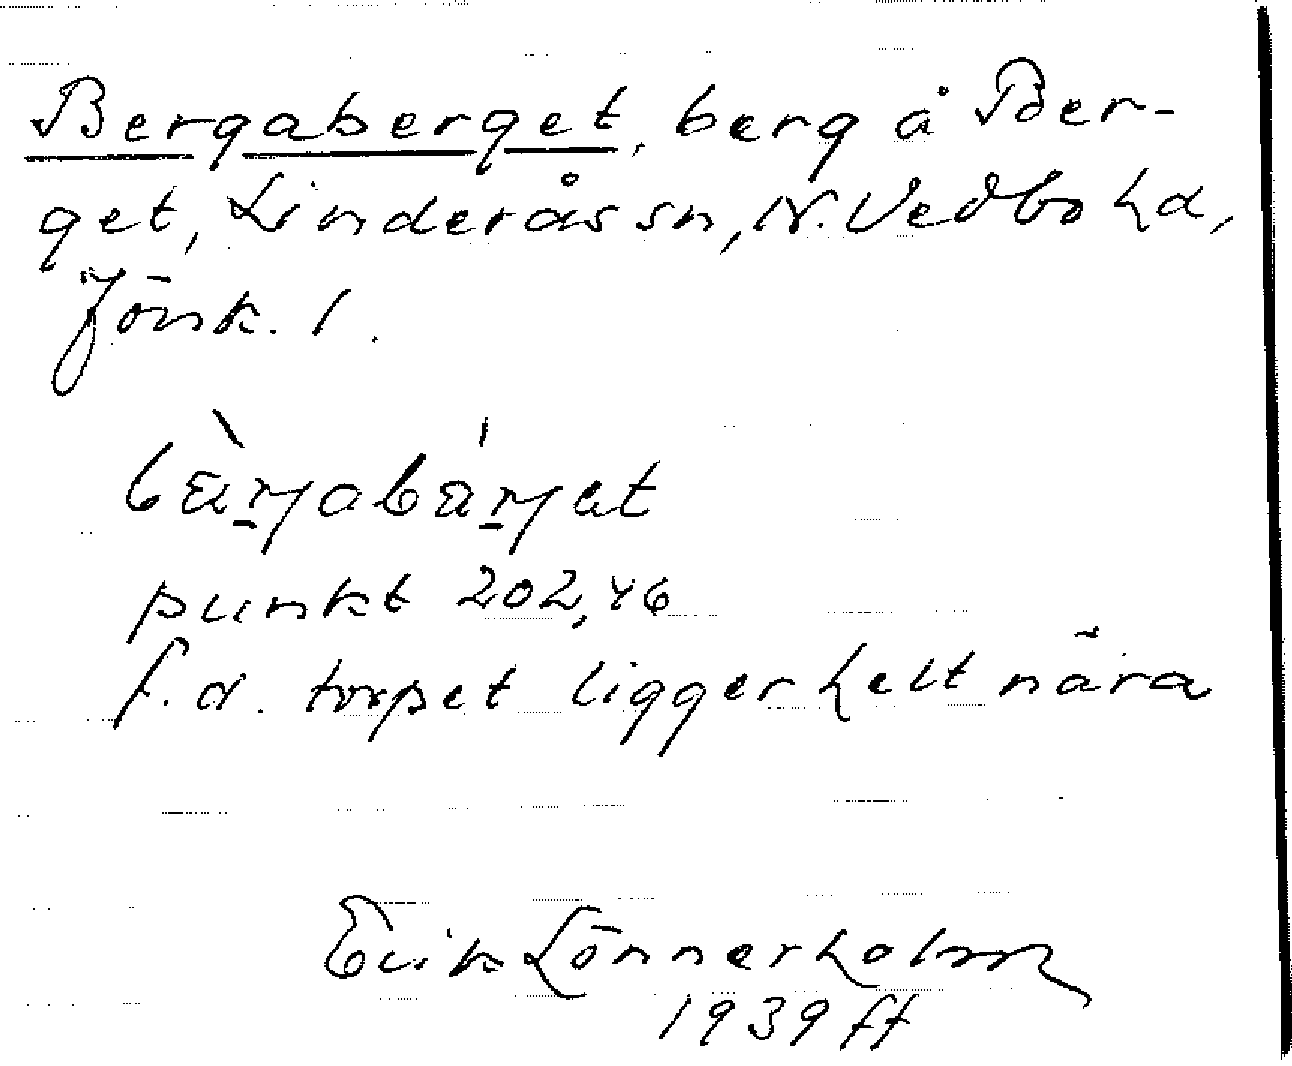 Bergaberget, berg å Ber-
get, Linderås sn, N. Vedbo hd,
Jönk. l.
punkt 202,46
f.d. torpet ligger helt nära
Erik Lönnerholm
1939 ff